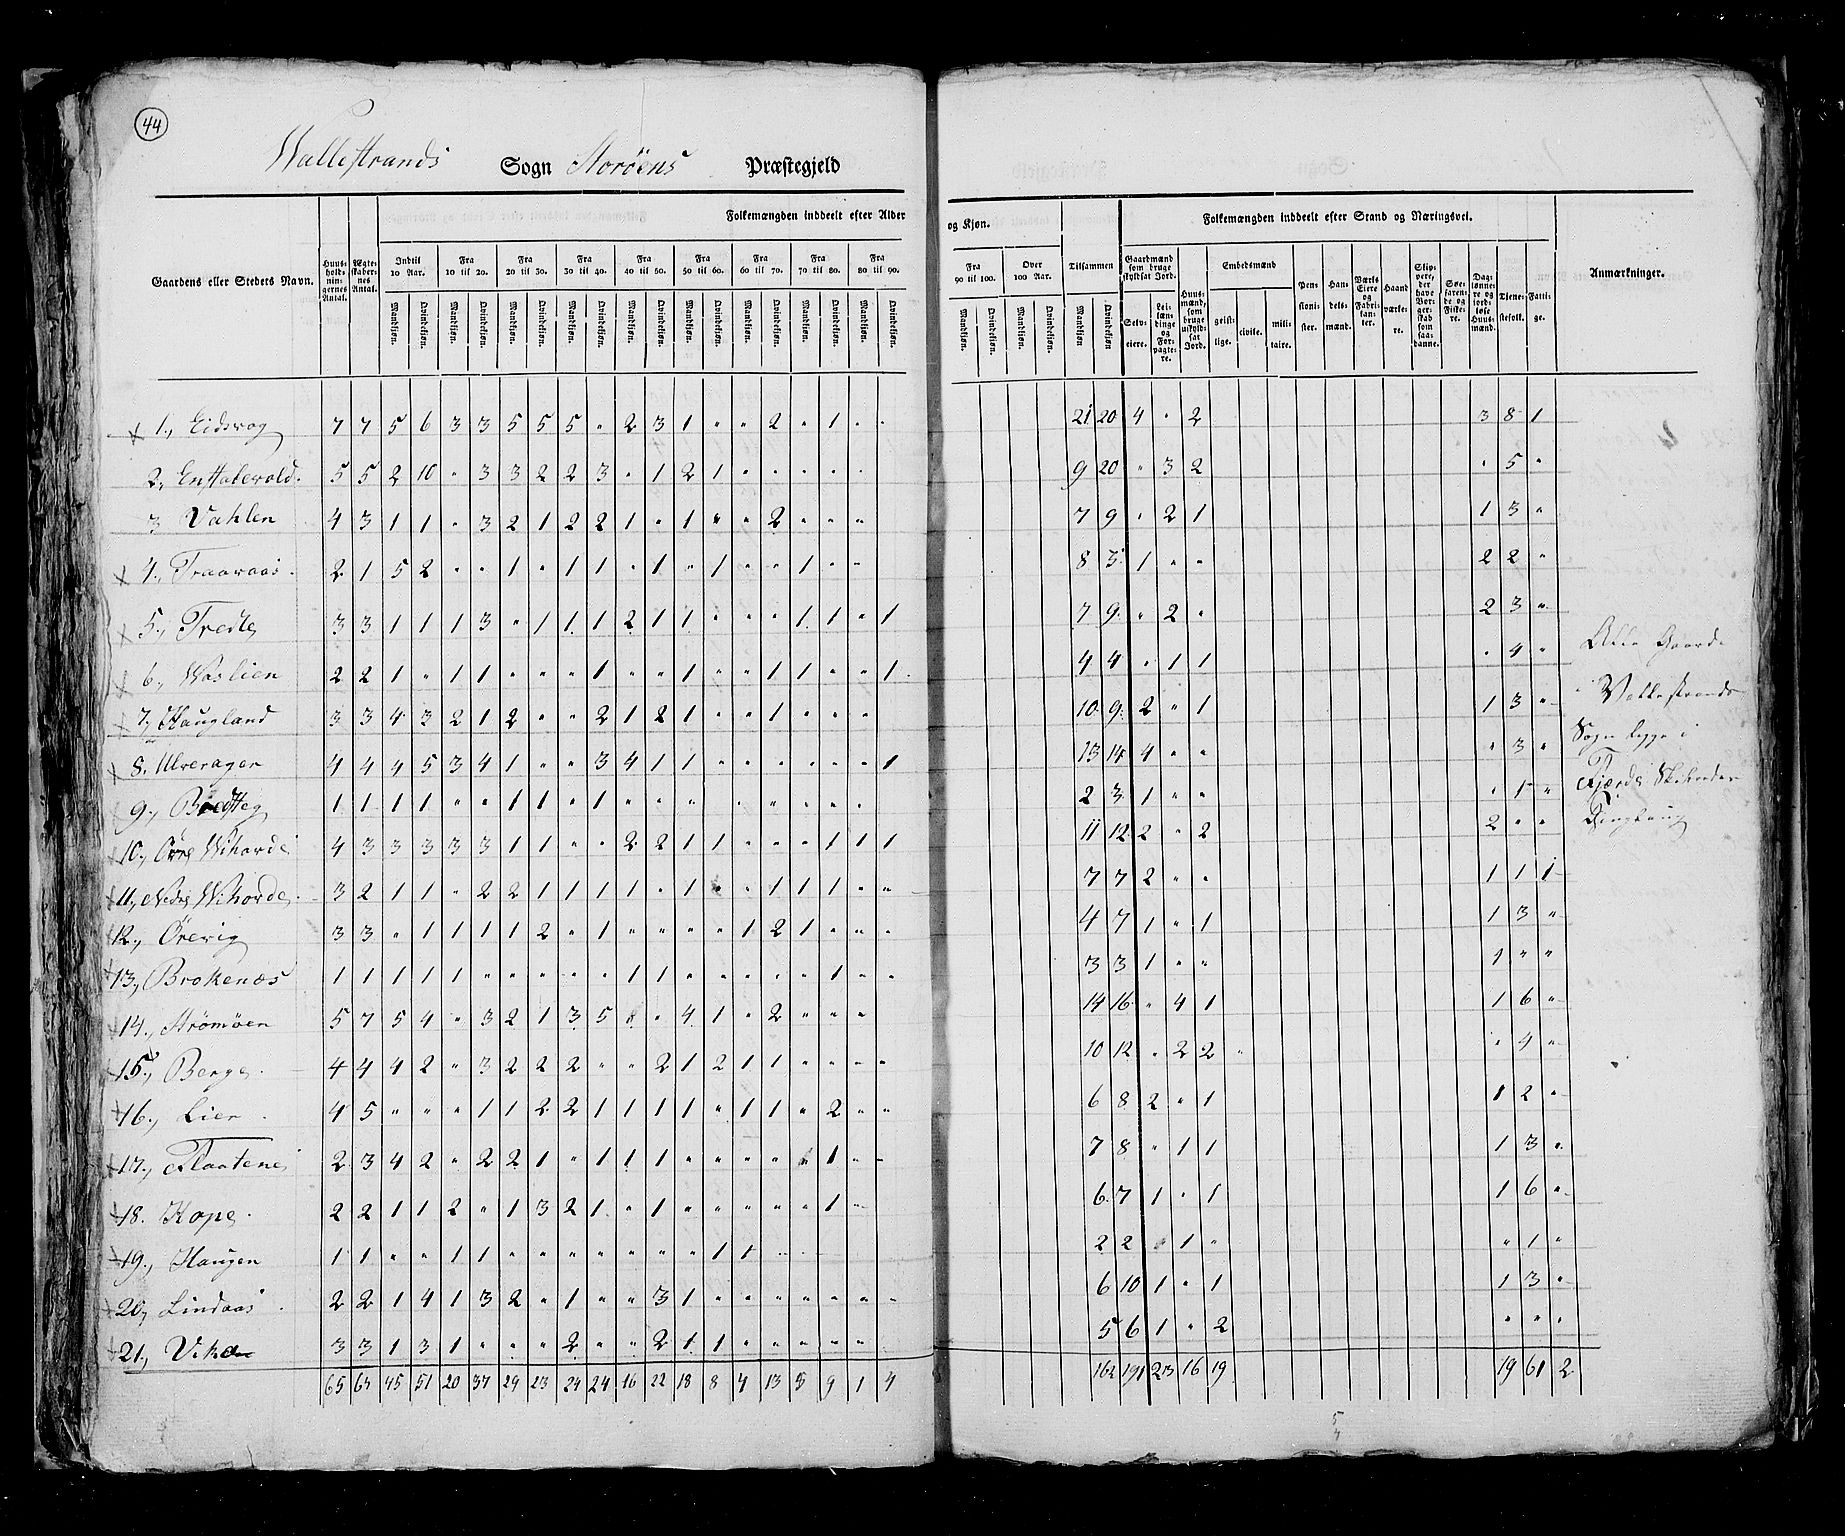 44
Wallestrands Sogn Storöens Præstegjeld
Folkemængden inddeelt efter Alder og Kjøn. Tilsammen Folkemængden inddeelt efter Stand og Næringsvei.
Gaardens eller Stedets Navn. Huus-hold-nin-gernes Antal. Ægte-skaber-nes Antal. Indtil 10 Aar. Fra 10 til 20. Fra 20 til 30. Fra 30 til 40. Fra 40 til 50. Fra 50 til 60. Fra 60 til 70. Fra 70 til 80. Fra 80 til 90. Fra 90 til 100. Over 100 Aar. Gaardmænd som bruge skyldsat Jord. Embedsmænd Anmærkninger.
Mandkjøn. Qvindekjøn. Selv-eiere. Lei-læn-dinge og For-pagte-re. Huus-mænd, som bruge uskyld-sat Jord. geist-lige. civile. mili-taire. Pen-sioni-ster. Han-dels-mænd. Værks Eiere og Fabri-kan-ter. Haand-værke-re. Skip-pere, der have Bor-ger-skab som saa-danne. Søe-faren-de og Fiske-re. Dag-lønne-re og jord-løse Huus-mænd. Tjene-stefolk. Fatti-ge.
1., Eidsvog 7 7 5 6 3 3 5 5 5 " 2 3 1 " " 2 " 1 " " 21 20 4 " 2 3 8 1
2., 5 5 2 10 " 3 3 2 2 3 " 1 2 1 " " " " " 9 20 " 3 2 " 5 "
3 Vahlen 4 3 1 1 " 3 2 1 2 2 1 " 1 " " 2 " " " 7 9 " 2 1 1 3 "
4., Traavaas 2 1 5 2 " " 1 " 1 1 " 1 " 1 " " 1 " " 8 5 1 " " 2 2 "
5., 3 3 1 1 1 3 " 1 1 1 2 1 1 " " " 1 1 " 1 7 9 " 2 " 2 3 "
6., Waslien 2 2 1 " 1 1 " " " 1 " " 1 " " 1 1 " " 1 4 4 " 1 1 " 4 "
7., Haugland 3 3 4 3 2 1 2 " " 2 1 2 1 " " 1 " " " 10 9 2 " 1 1 3 "
8. Ulveragen 4 4 4 5 3 4 1 " " 3 4 1 1 " " " " " " 1 13 14 4 " " " 3 "
9., 1 1 1 1 " " 1 1 " 1 " " " " " " " " 2 3 1 " " " 1 "
10., Öfre Wihovde 4 3 3 3 3 3 1 1 " " 2 2 1 1 " " " 1 1 1 11 12 2 " 2 2 " "
11., Nedre Wihovde 3 2 1 1 " 2 2 1 1 1 1 " 1 " " 1 1 1 " " 7 7 2 " " 1 1 1
12., Örevig 3 3 " 1 1 1 1 2 " 1 " " " " 1 2 1 " " " 4 7 1 " 1 1 3 "
13., Brokenæs 1 1 1 1 1 " " " " " 1 1 " " " " " 1 " " 3 3 1 " " 1 " "
14., Strömöen 5 7 5 4 " 3 2 1 3 5 " 4 1 " 2 " " " 14 16 " 4 1 1 6 "
15., Berge 4 4 4 2 " 3 2 2 2 " " 2 1 2 1 1 " " " " 10 12 " 2 2 " 4 "
16., Lier 4 5 " " " 1 1 2 2 1 1 1 1 " 1 1 " 2 " " 6 8 2 " 1 1 2 "
17., Flaatene 2 3 4 2 " 2 2 1 " 1 1 1 " " " " " 1 " " 7 8 " 1 1 1 3 "
18. Hope 2 2 1 1 2 " 1 3 2 1 " 1 " " " " " 1 " 6 7 1 " 1 1 6 "
19., Haugen 1 1 " " 1 1 " " " " " " " 1 1 " 2 2 " 1 " " 1 "
20., Lindaas 2 2 1 4 1 3 2 " 1 " " 3 1 " " " " " " " 6 10 1 " 1 1 3 "
21., 3 3 1 3 1 " " " 2 " " 2 1 1 " " " " " 5 6 1 " 2 " " "
65 64 45 51 20 37 29 23 24 24 16 22 18 8 4 13 5 9 1 4 162 191 23 16 19 19 61 2
Alle Gaarde
i Vallestrands
Sogn ligge i
Fjærds Skibreder
Tinglaug
5
4